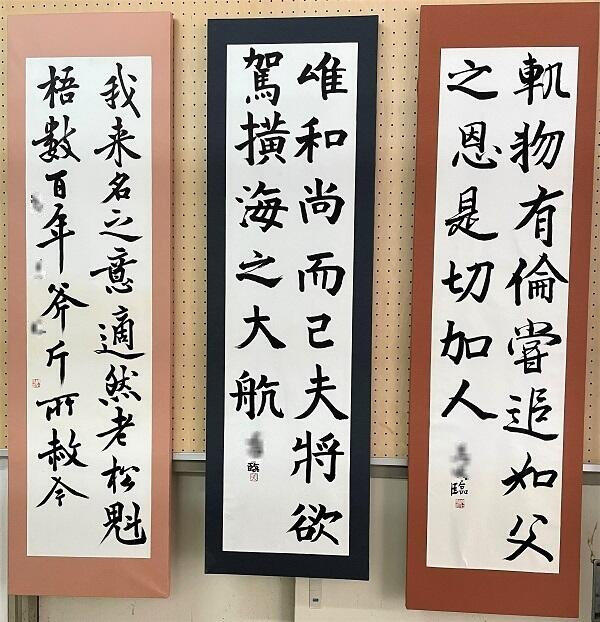 軌物有倫嘗追如父
之恩是切加人
臨
唯和尚而已夫將欲
駕横海之大航
臨
我来名之意適然老松魁
梧數百年斧斤所赦今